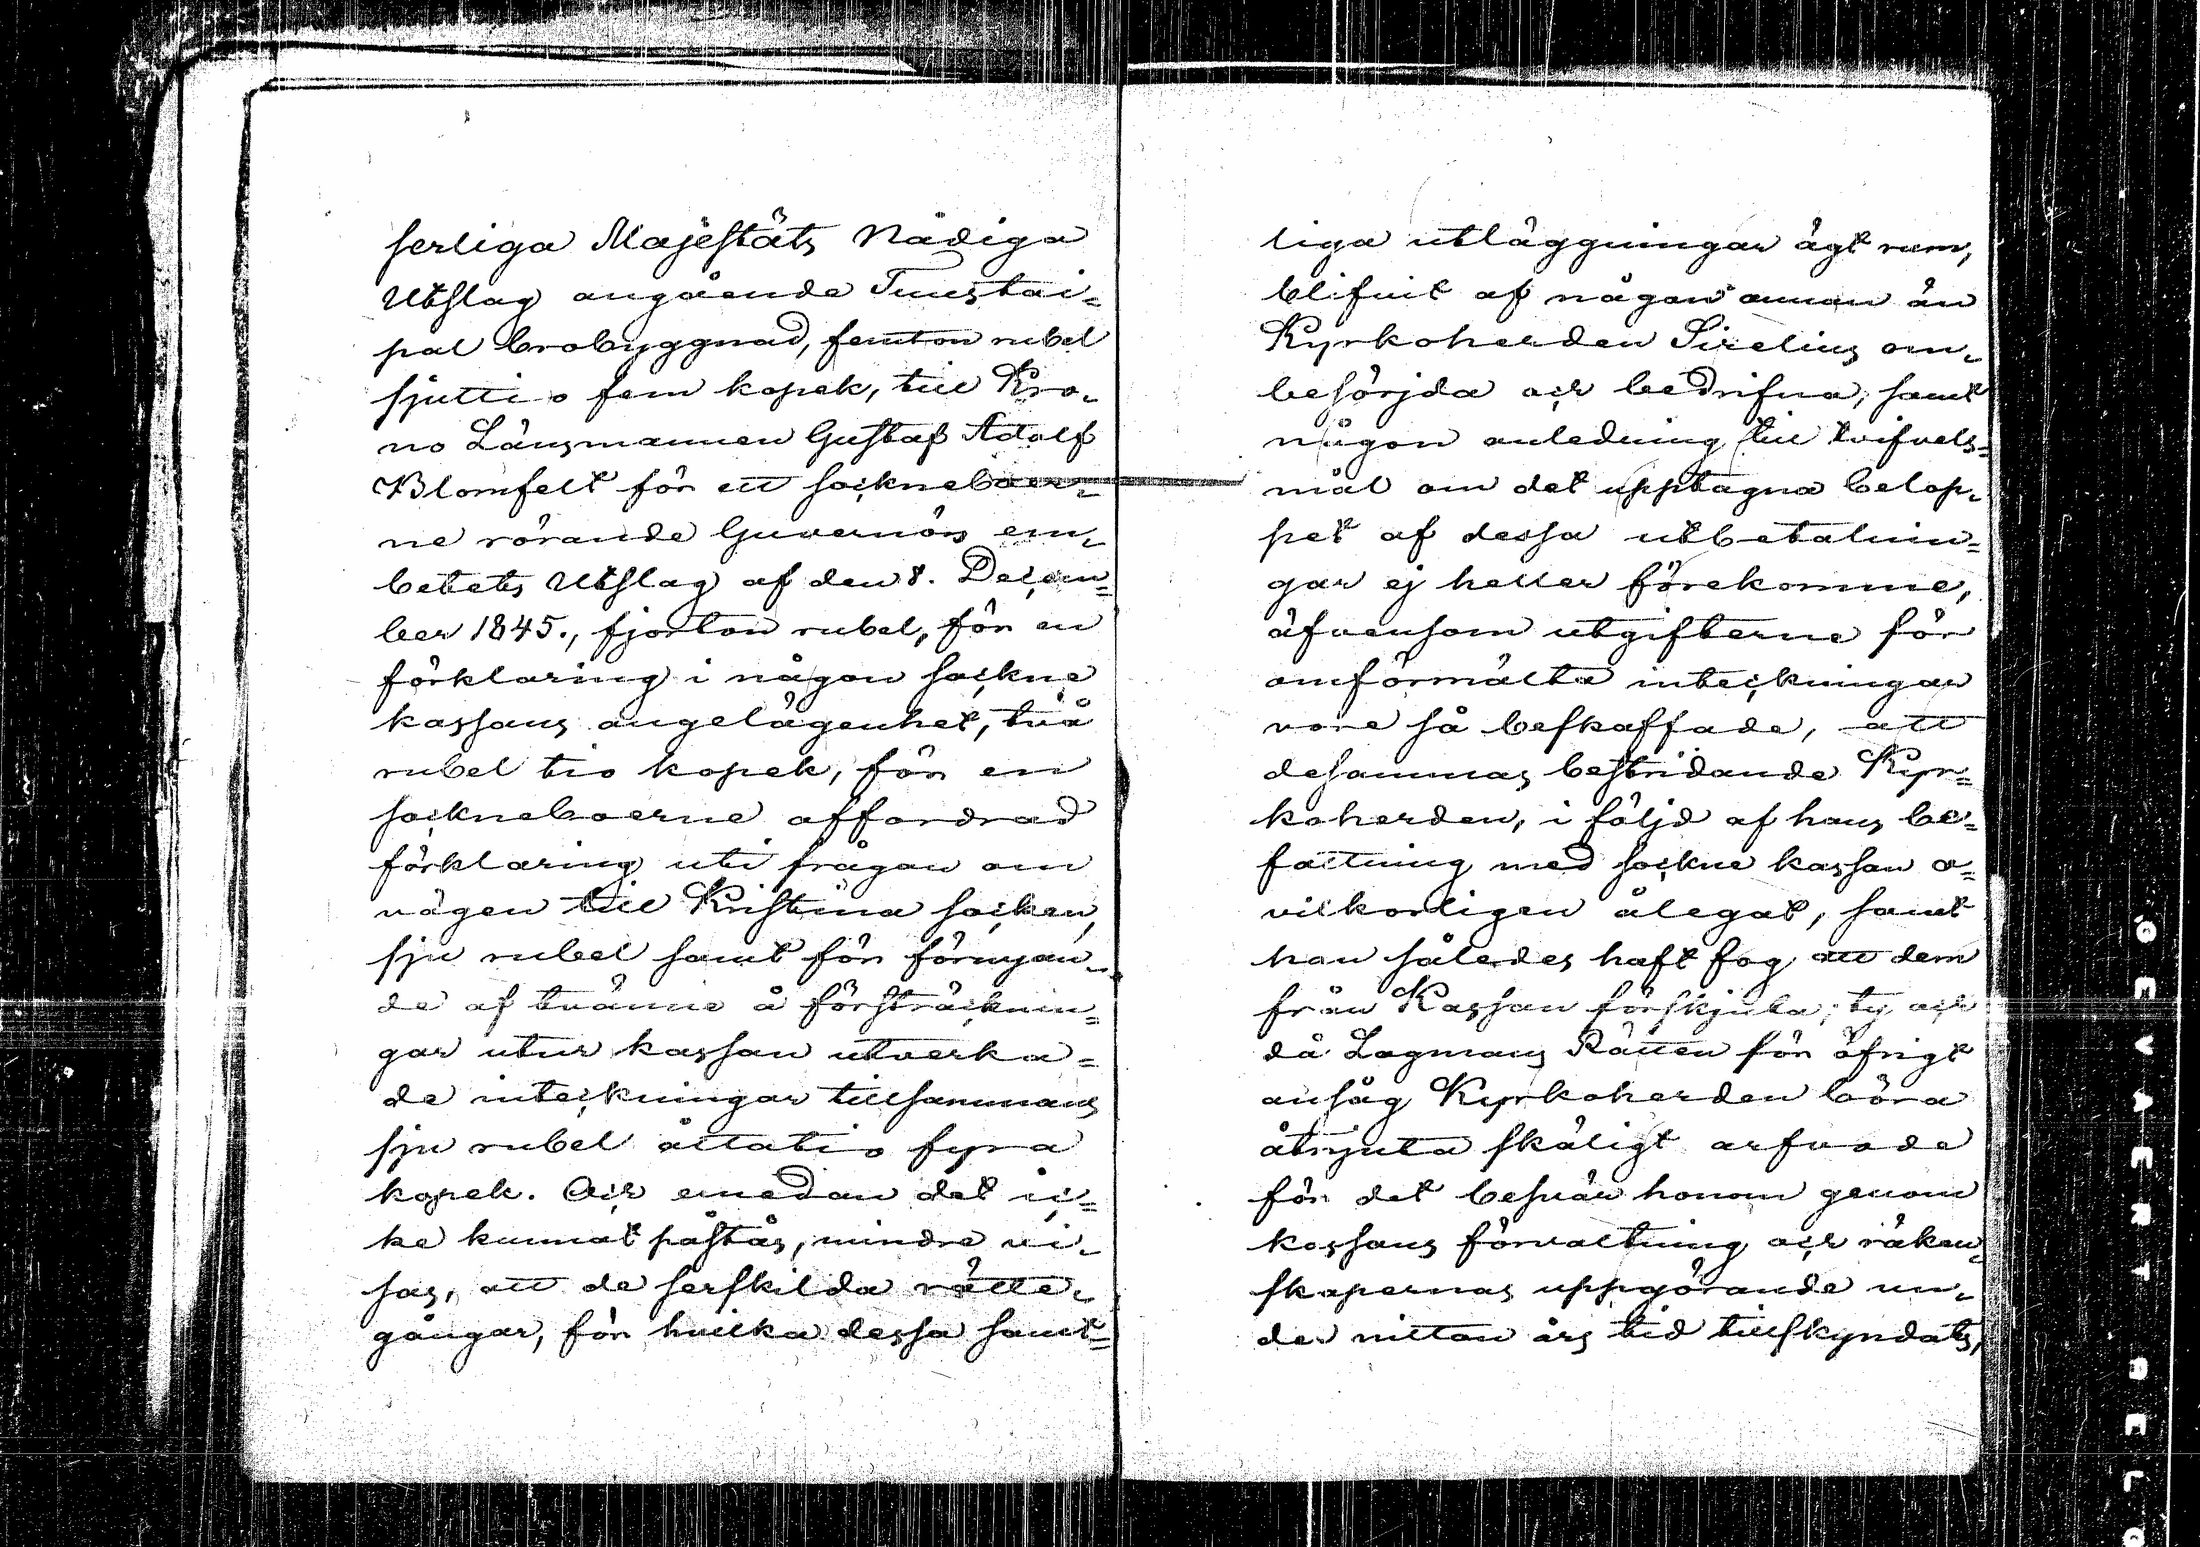 serliga Majestäts Nådiga
Utslag angående Tuustai-
pal brobyggnad, femton rubel
sjuttio fem kopek, till Kro-
no Länsmannen Gustaf Adolf
Blomfelt för ett sockneboer-
ne rörande Guvernörs em-
betets Utslag af den 8. Decem=
ber 1845., fjorton rubel, för en
förklaring i någon sockne
kassans angelägenhet, två
rubel tio kopek, för en
sockneboerne affordrad
förklaring uti frågan om
vägen till Kristina socken,
sju rubel samt för förnyan-
de af tvänne å försträcknin=
gar utur kassan utverka=
de inteckningar tillsammans
sju rubel åttatio fyra
kopek. Och emedan det ic=
ke kunnat påstås, mindre vi-
sas, att de serskilda rätte-
gångar, för hvilka dessa samt=
liga utläggningar ägt rum,
blifvit af någon annan än
Kyrkoherden Sirelius om-
besörjda och bedrifna, samt
någon anledning till tvifvels=
mål om det upptagna belop-
pet af dessa utbetalnin=
gar ej heller förekomme,
äfvensom utgifterne för
omförmälta inteckningar
vore så beskaffade, att
desammas bestridande Kyr=
koherden, i följd af hans be=
fattning med sockne kassan o=
vilkorligen ålegat, samt
han således haft fog att dem
från Kassan förskjuta; ty och
då Lagmans Rätten för öfrigt
ansåg Kyrkoherden böra
åtnjuta skäligt arfvode
för det besvär honom genom
kassans förvaltning och räken-
skapernas uppgörande un-
der nitton års tid tillskyndats,